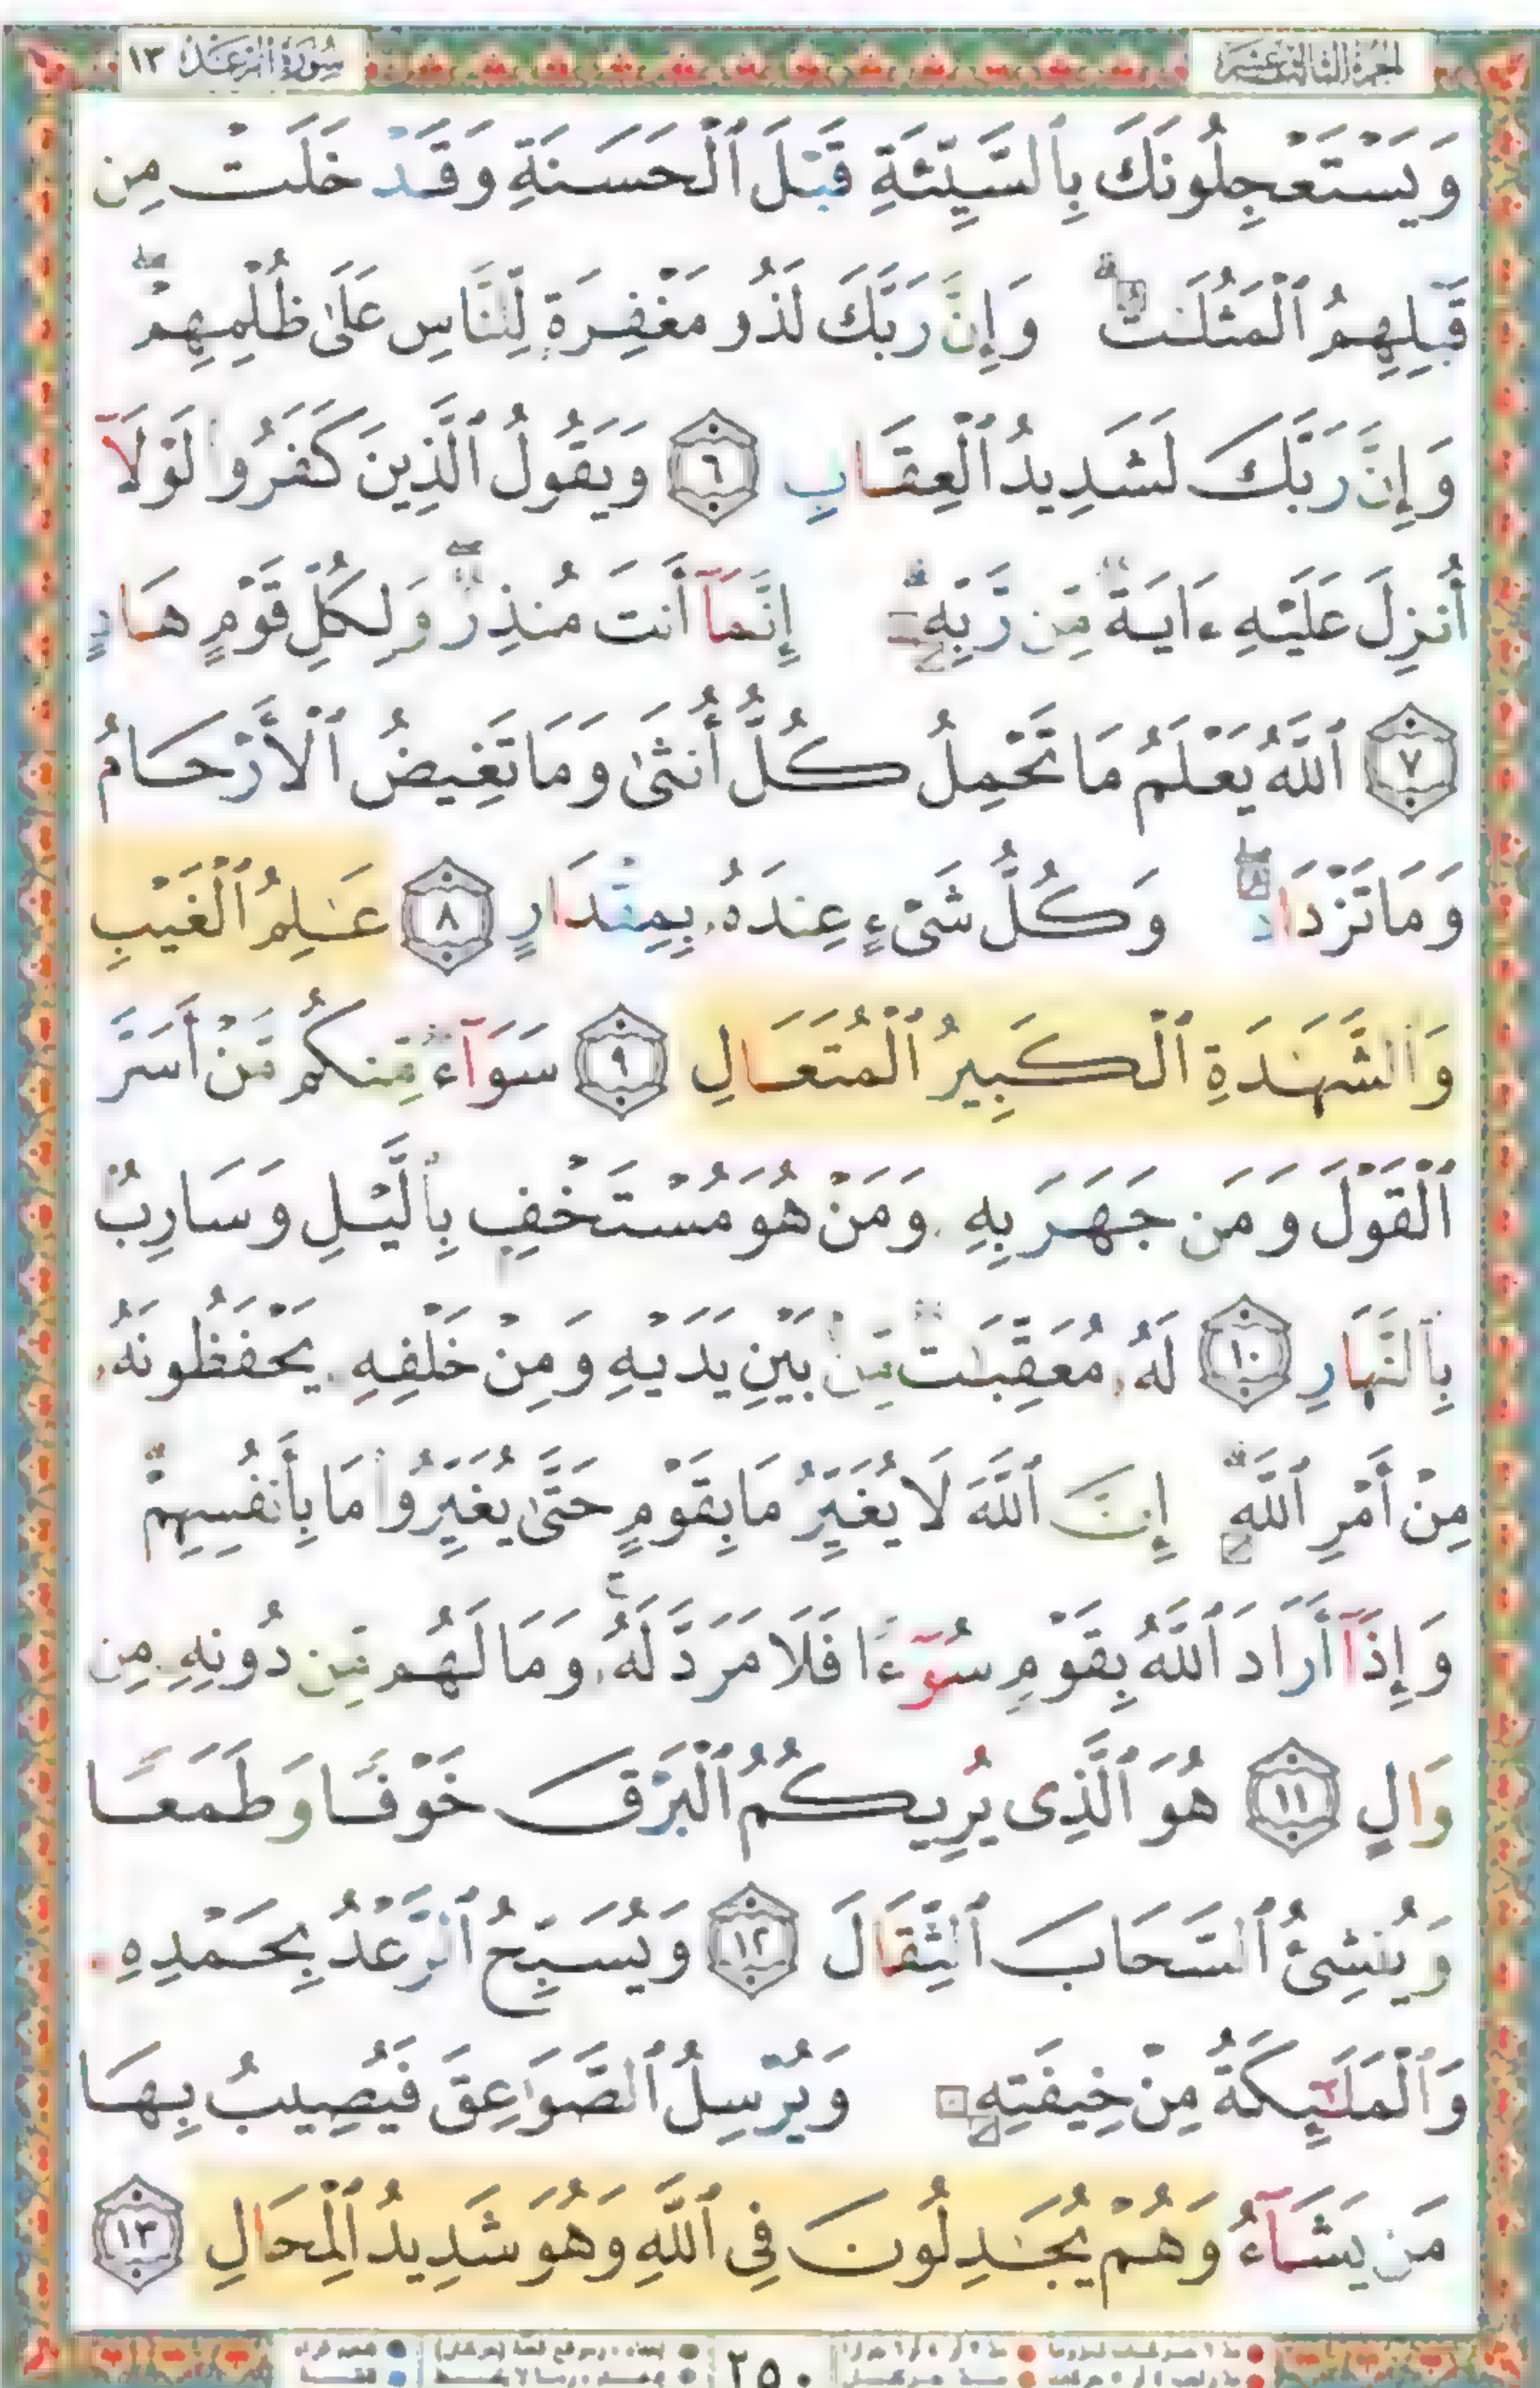 الجزء الثالث عشر
سورة الرعد ١٣
وَيَسْتَعْجِلُونَكَ بِٱلسَّيِّئَةِ قَبْلَ ٱلْحَسَنَةِ وَقَدْ خَلَتْ مِن
قَبْلِهِمُ ٱلْمَثُلَٰتُ ۗ وَإِنَّ رَبَّكَ لَذُو مَغْفِرَةٍ لِّلنَّاسِ عَلَىٰ ظُلْمِهِمْ ۖ
وَإِنَّ رَبَّكَ لَشَدِيدُ ٱلْعِقَابِ ٦ وَيَقُولُ ٱلَّذِينَ كَفَرُوا۟ لَوْلَآ
أُنزِلَ عَلَيْهِ ءَايَةٌ مِّن رَّبِّهِۦٓ ۗ إِنَّمَآ أَنتَ مُنذِرٌ ۖ وَلِكُلِّ قَوْمٍ هَادٍ
٧ ٱللَّهُ يَعْلَمُ مَا تَحْمِلُ كُلُّ أُنثَىٰ وَمَا تَغِيضُ ٱلْأَرْحَامُ
وَمَا تَزْدَادُ ۖ وَكُلُّ شَىْءٍ عِندَهُۥ بِمِقْدَارٍ ٨ عَٰلِمُ ٱلْغَيْبِ
وَٱلشَّهَٰدَةِ ٱلْكَبِيرُ ٱلْمُتَعَالِ ٩ سَوَآءٌ مِّنكُم مَّنْ أَسَرَّ
ٱلْقَوْلَ وَمَن جَهَرَ بِهِۦ وَمَنْ هُوَ مُسْتَخْفٍ بِٱلَّيْلِ وَسَارِبٌ
بِٱلنَّهَارِ ١٠ لَهُۥ مُعَقِّبَٰتٌ مِّنۢ بَيْنِ يَدَيْهِ وَمِنْ خَلْفِهِۦ يَحْفَظُونَهُۥ
مِنْ أَمْرِ ٱللَّهِ ۗ إِنَّ ٱللَّهَ لَا يُغَيِّرُ مَا بِقَوْمٍ حَتَّىٰ يُغَيِّرُوا۟ مَا بِأَنفُسِهِمْ ۗ
وَإِذَآ أَرَادَ ٱللَّهُ بِقَوْمٍ سُوٓءًا فَلَا مَرَدَّ لَهُۥ ۚ وَمَا لَهُم مِّن دُونِهِۦ مِن
وَالٍ ١١ هُوَ ٱلَّذِى يُرِيكُمُ ٱلْبَرْقَ خَوْفًا وَطَمَعًا
وَيُنشِئُ ٱلسَّحَابَ ٱلثِّقَالَ ١٢ وَيُسَبِّحُ ٱلرَّعْدُ بِحَمْدِهِۦ
وَٱلْمَلَٰٓئِكَةُ مِنْ خِيفَتِهِۦ وَيُرْسِلُ ٱلصَّوَٰعِقَ فَيُصِيبُ بِهَا
مَن يَشَآءُ وَهُمْ يُجَٰدِلُونَ فِى ٱللَّهِ وَهُوَ شَدِيدُ ٱلْمِحَالِ ١٣
٢٥٠